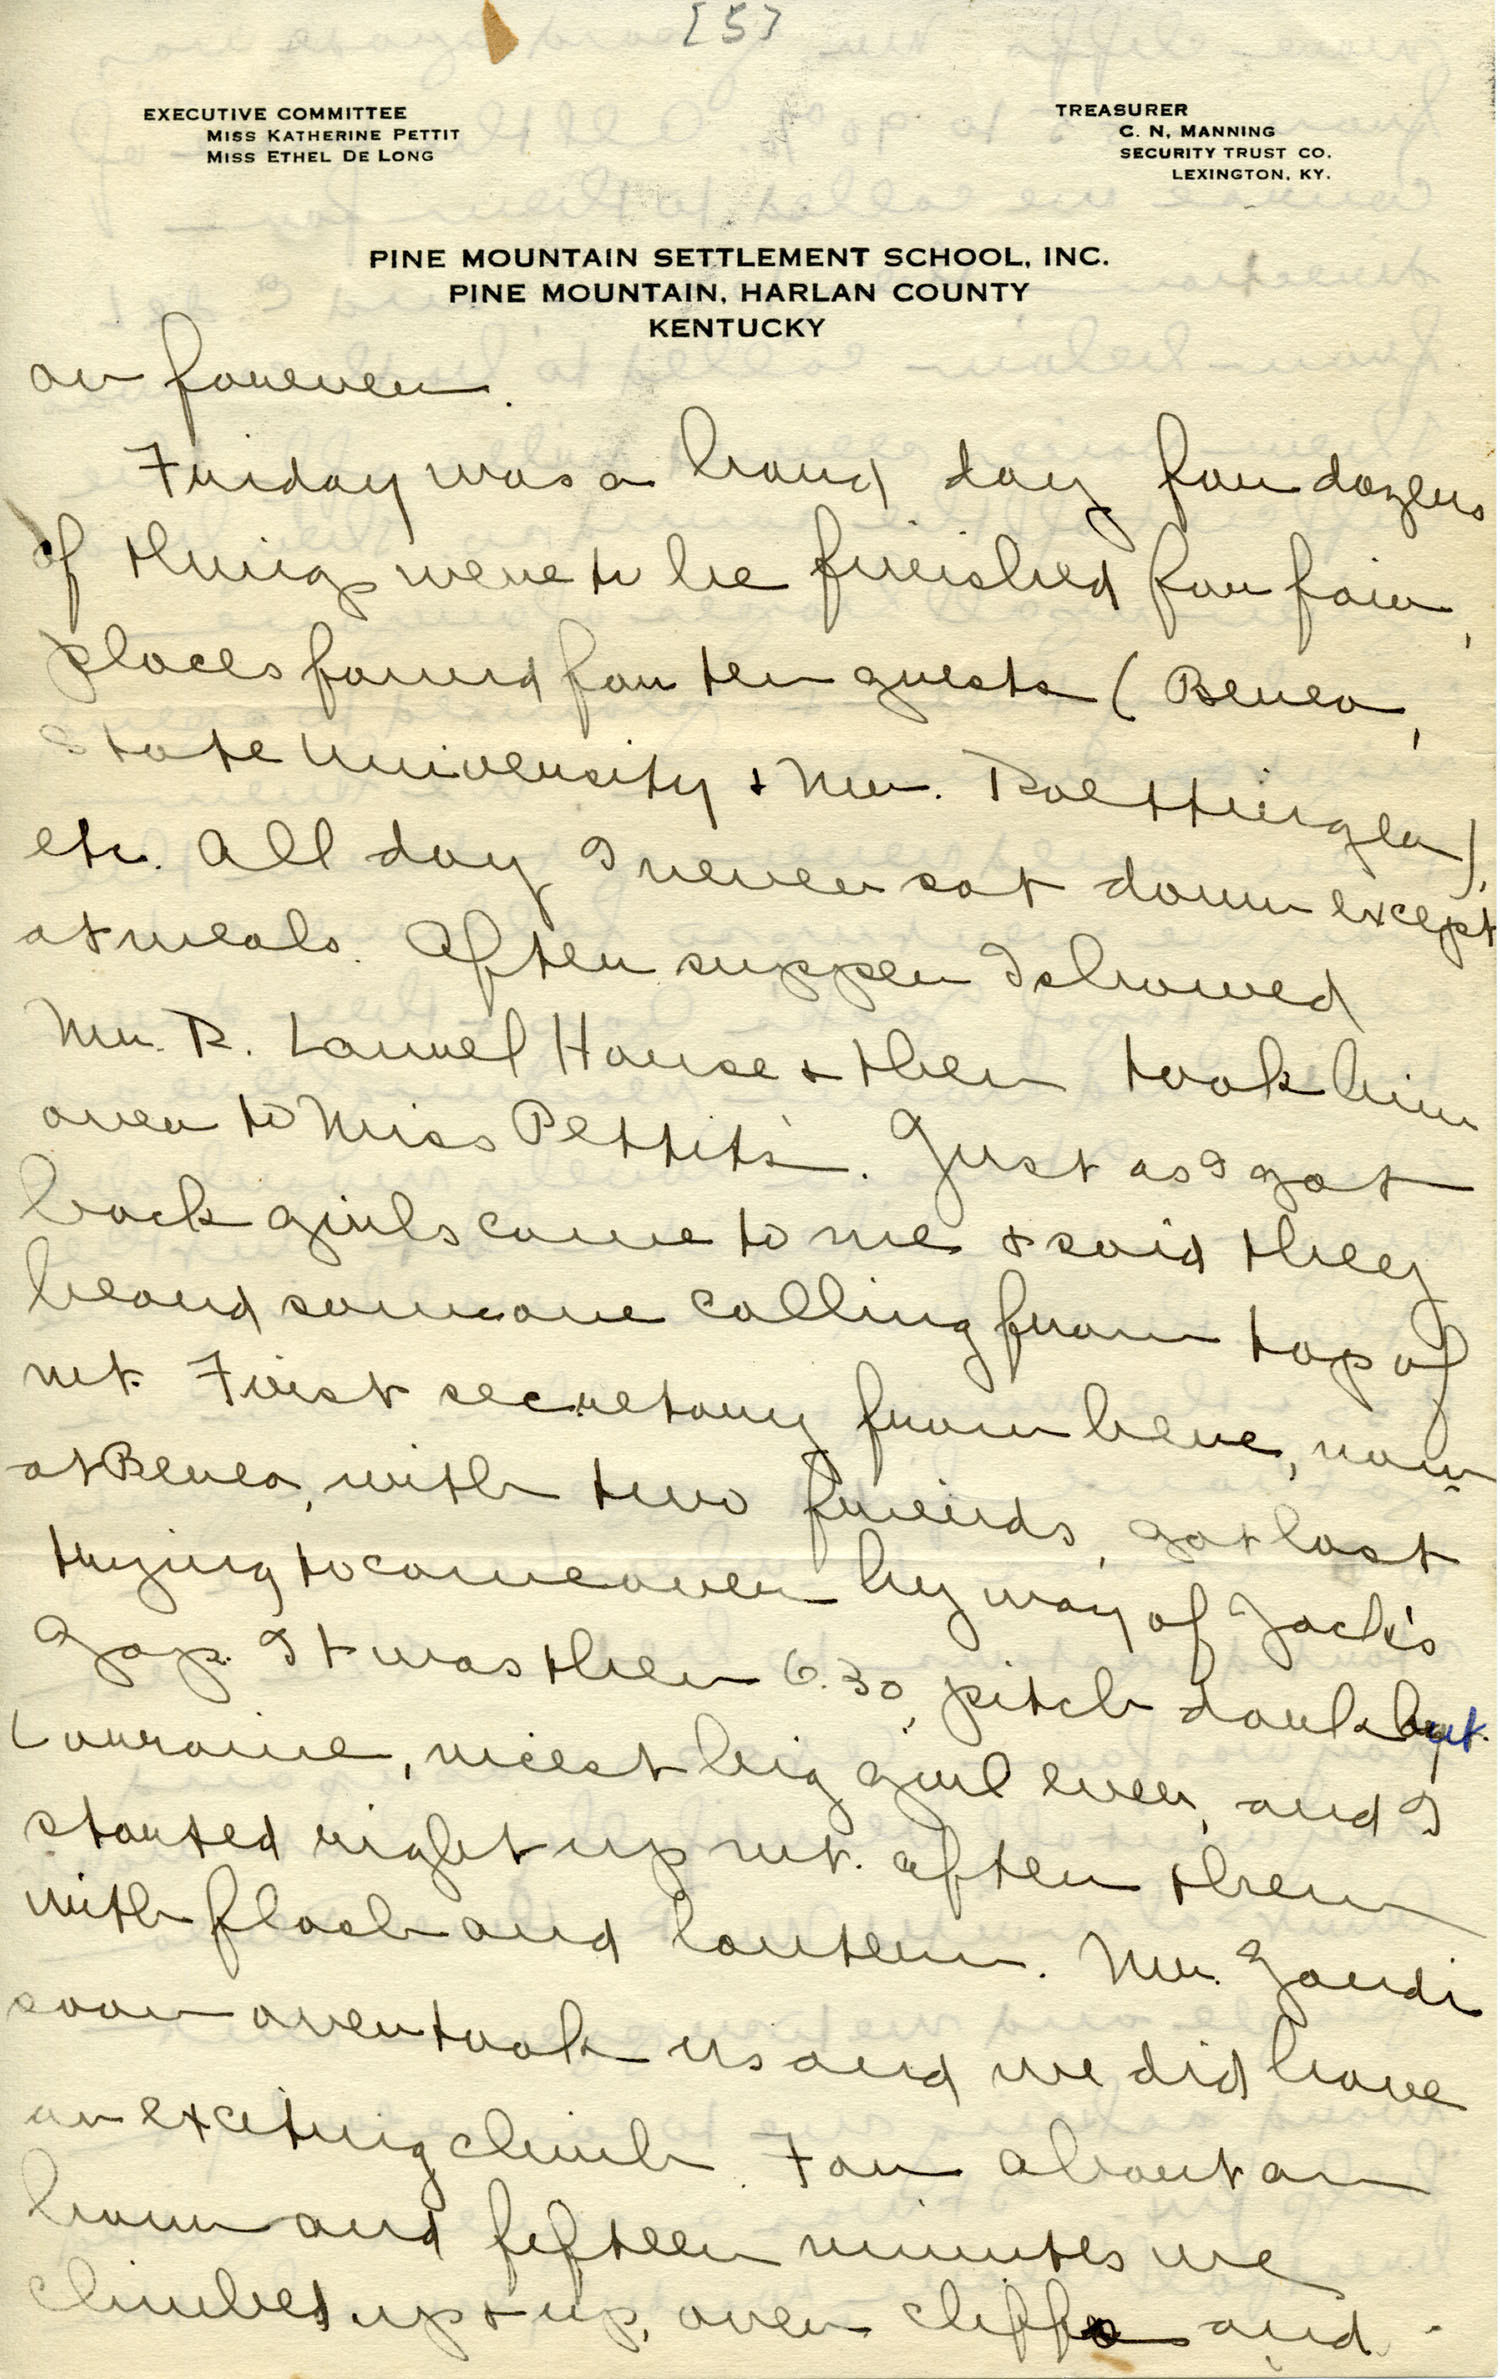 [5]
EXECUTIVE COMMITTEE
MISS KATHERINE PETTIT
MISS ETHEL DE LONG
TREASURER
C. N. MANNING
SECURITY TRUST CO.
LEXINGTON, KY.
PINE MOUNTAIN SETTLEMENT SCHOOL, INC.
PINE MOUNTAIN, HARLAN COUNTY
KENTUCKY
on forever.
Friday was a hard day for dozens
of things were to be finished for fair,
places found for ten guests (Berea,
State University + Mr. Roettinger),
etc. All day I never sat down except
at meals. After supper I showed
Mr. R. Laurel House + then took him
over to Miss Pettit's. Just as I got
back girls came to me + said they
heard someone calling from top of
mt. First secretary from here, now
at Berea, with two friends, got lost
trying to come over by way of Jack's
Gap. It was then 6.30, pitch dark but
Lourraine, nicest big girl ever, and I
started right up mt. after them
with flash and lantern. Mr. Zande
soon overtook us and we did have
an exciting climb. For about an
hour and fifteen minutes we
climbed up + up, over cliffs and